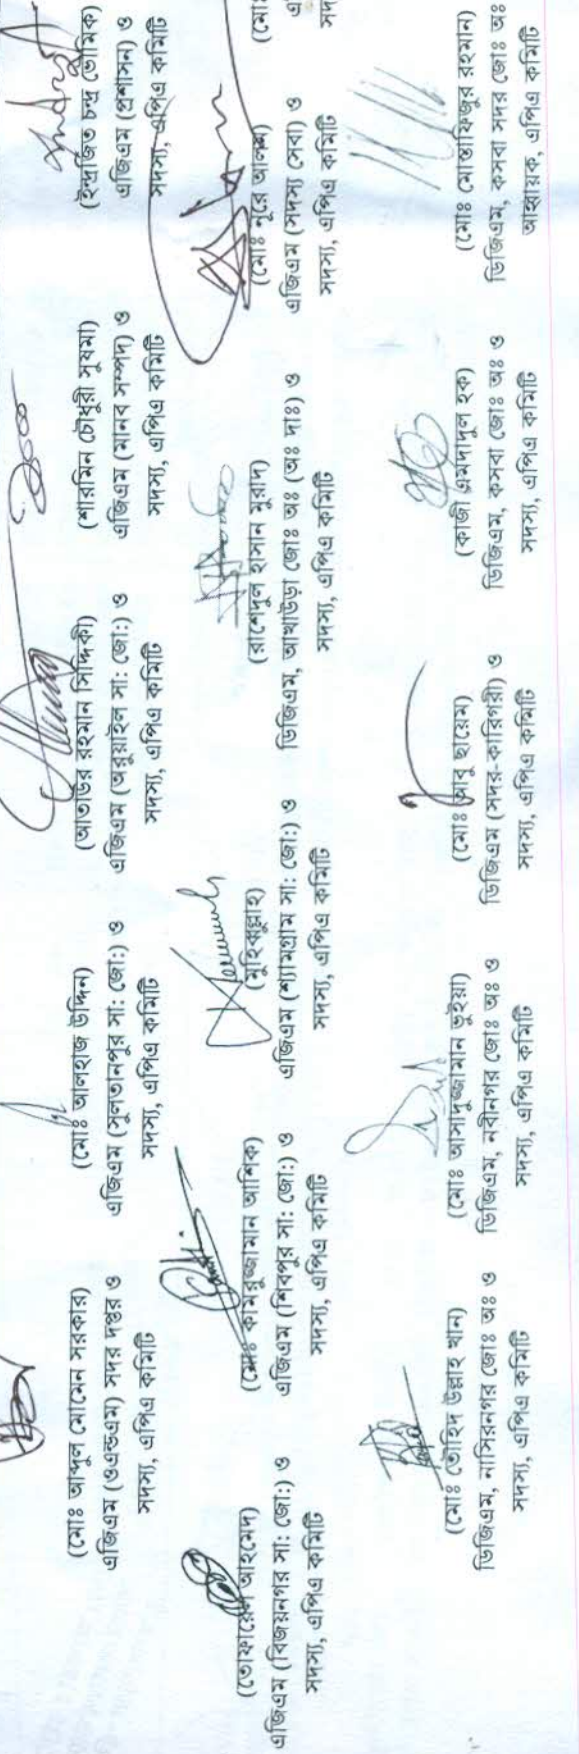 (মোঃ আব্দুল মোমেন সরকার)
এজিএম (ওএন্ডএম) সদর দপ্তর ও
সদস্য, এপিএ কমিটি
(মোঃ আলহাজ উদ্দিন)
এজিএম (সুলতানপুর সা: জো:) ও
সদস্য, এপিএ কমিটি
(আতাউর রহমান সিদ্দিকী)
এজিএম (অরুয়াইল সা: জো:) ও
সদস্য, এপিএ কমিটি
(শারমিন চৌধুরী সুষমা)
এজিএম (মানব সম্পদ) ও
সদস্য, এপিএ কমিটি
(ইন্দ্রজিত চন্দ্র ভৌমিক)
এজিএম (প্রশাসন) ও
সদস্য, এপিএ কমিটি
(তোফায়েল আহমেদ)
এজিএম (বিজয়নগর সা: জো:) ও
সদস্য, এপিএ কমিটি
(মোঃ কামরুজ্জামান আশিক)
এজিএম (শিবপুর সা: জো:) ও
সদস্য, এপিএ কমিটি
(মুহিবুল্লাহ)
এজিএম (শ্যামগ্রাম সা: জো:) ও
সদস্য, এপিএ কমিটি
(রাশেদুল হাসান মুরাদ)
ডিজিএম, আখাউড়া জোঃ অঃ (অঃ দাঃ) ও
সদস্য, এপিএ কমিটি
(মোঃ নূরে আলম)
এজিএম (সদস্য সেবা) ও
সদস্য, এপিএ কমিটি
(মো:
এ
সদ
(মোঃ তৌহিদ উল্লাহ খান)
ডিজিএম, নাসিরনগর জোঃ অঃ ও
সদস্য, এপিএ কমিটি
(মোঃ আসাদুজ্জামান ভূইয়া)
ডিজিএম, নবীনগর জোঃ অঃ ও
সদস্য, এপিএ কমিটি
(মোঃ আবু ছায়েম)
ডিজিএম (সদর-কারিগরী) ও
সদস্য, এপিএ কমিটি
(কাজী এমদাদুল হক)
ডিজিএম, কসবা জোঃ অঃ ও
সদস্য, এপিএ কমিটি
(মোঃ মোস্তাফিজুর রহমান)
ডিজিএম, কসবা সদর জোঃ অঃ
আহ্বায়ক, এপিএ কমিটি